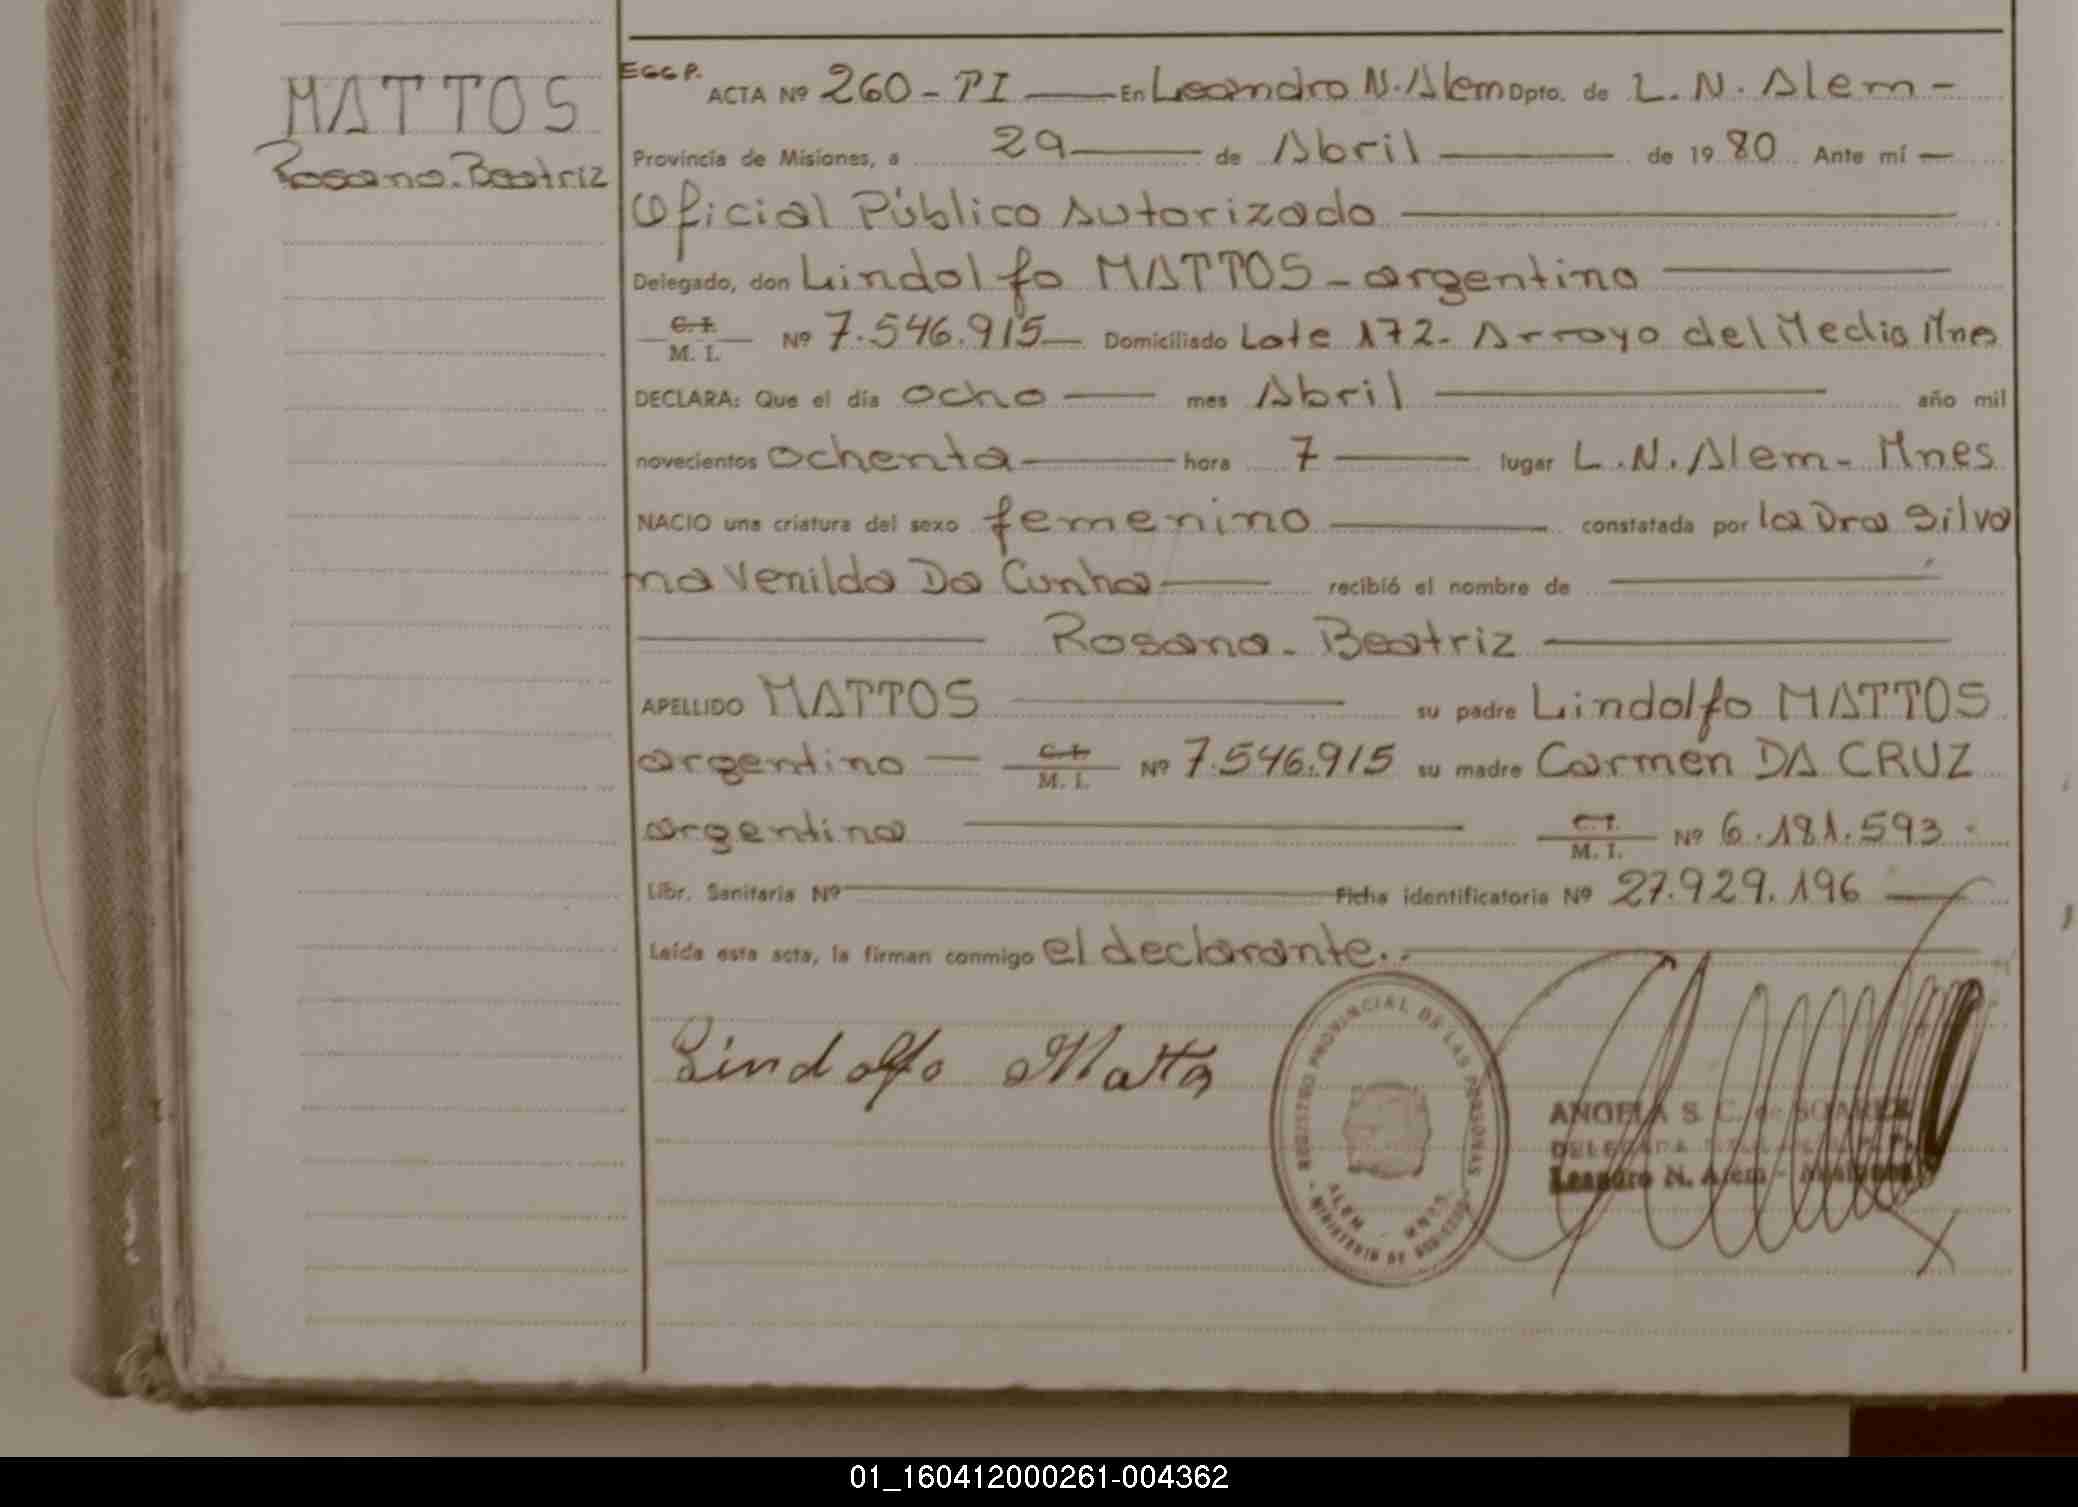 MATTOS
Rosana. Beatriz
EGGP.
ACTA Nº 260 - TI — En Leandro N. Alem Dpto. de L. N. Alem -
Provincia de Misiones, a 29 — de Abril — de 19 80 Ante mí —
Oficial Público Autorizado —
Delegado, don Lindolfo MATTOS - argentino —
C. I. / M. I. Nº 7.546.915 — Domiciliado Lote 172 - Arroyo del Medio Mnes
DECLARA: Que el día ocho — mes Abril — año mil
novecientos ochenta — hora 7 — lugar L. N. Alem - Mnes
NACIO una criatura del sexo femenino — constatada por la Dra Silva
na Venilda Da Cunha — recibió el nombre de —
— Rosana - Beatriz —
APELLIDO MATTOS — su padre Lindolfo MATTOS
argentino — C. I. / M. I. Nº 7.546.915 su madre Carmen DA CRUZ
argentina — C. I. / M. I. Nº 6.181.593 -
Libr. Sanitaria Nº — Ficha identificatoria Nº 27.929.196 —
Leída esta acta, la firman conmigo el declarante. . —
Lindolfo Matto
REGISTRO PROVINCIAL DE LAS PERSONAS
ALEM MNES
- MINISTERIO DE GOBIERNO -
ANGELA S. C. de SOAREZ
DELEGADA
Leandro N. Alem - Misiones
01_160412000261-004362